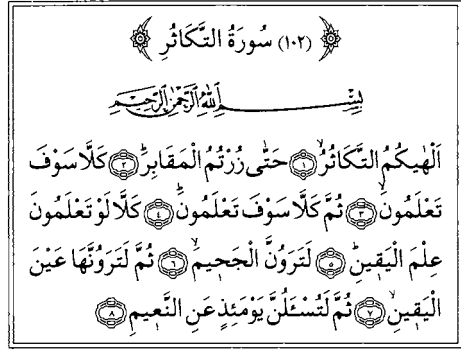 (١٠٢) سُورَةُ التَّكَاثُرِ
بِسْمِ اللّٰهِ الرَّحْمٰنِ الرَّحِيمِ
اَلْهٰيكُمُ التَّكَاثُرُۙ ﴿١﴾ حَتّٰى زُرْتُمُ الْمَقَابِرَۜ ﴿٢﴾ كَلَّا سَوْفَ
تَعْلَمُونَۙ ﴿٣﴾ ثُمَّ كَلَّا سَوْفَ تَعْلَمُونَۜ ﴿٤﴾ كَلَّا لَوْ تَعْلَمُونَ
عِلْمَ الْيَقِينِۜ ﴿٥﴾ لَتَرَوُنَّ الْجَحِيمَۙ ﴿٦﴾ ثُمَّ لَتَرَوُنَّهَا عَيْنَ
الْيَقِينِۙ ﴿٧﴾ ثُمَّ لَتُسْـَٔلُنَّ يَوْمَئِذٍ عَنِ النَّعِيمِ ﴿٨﴾